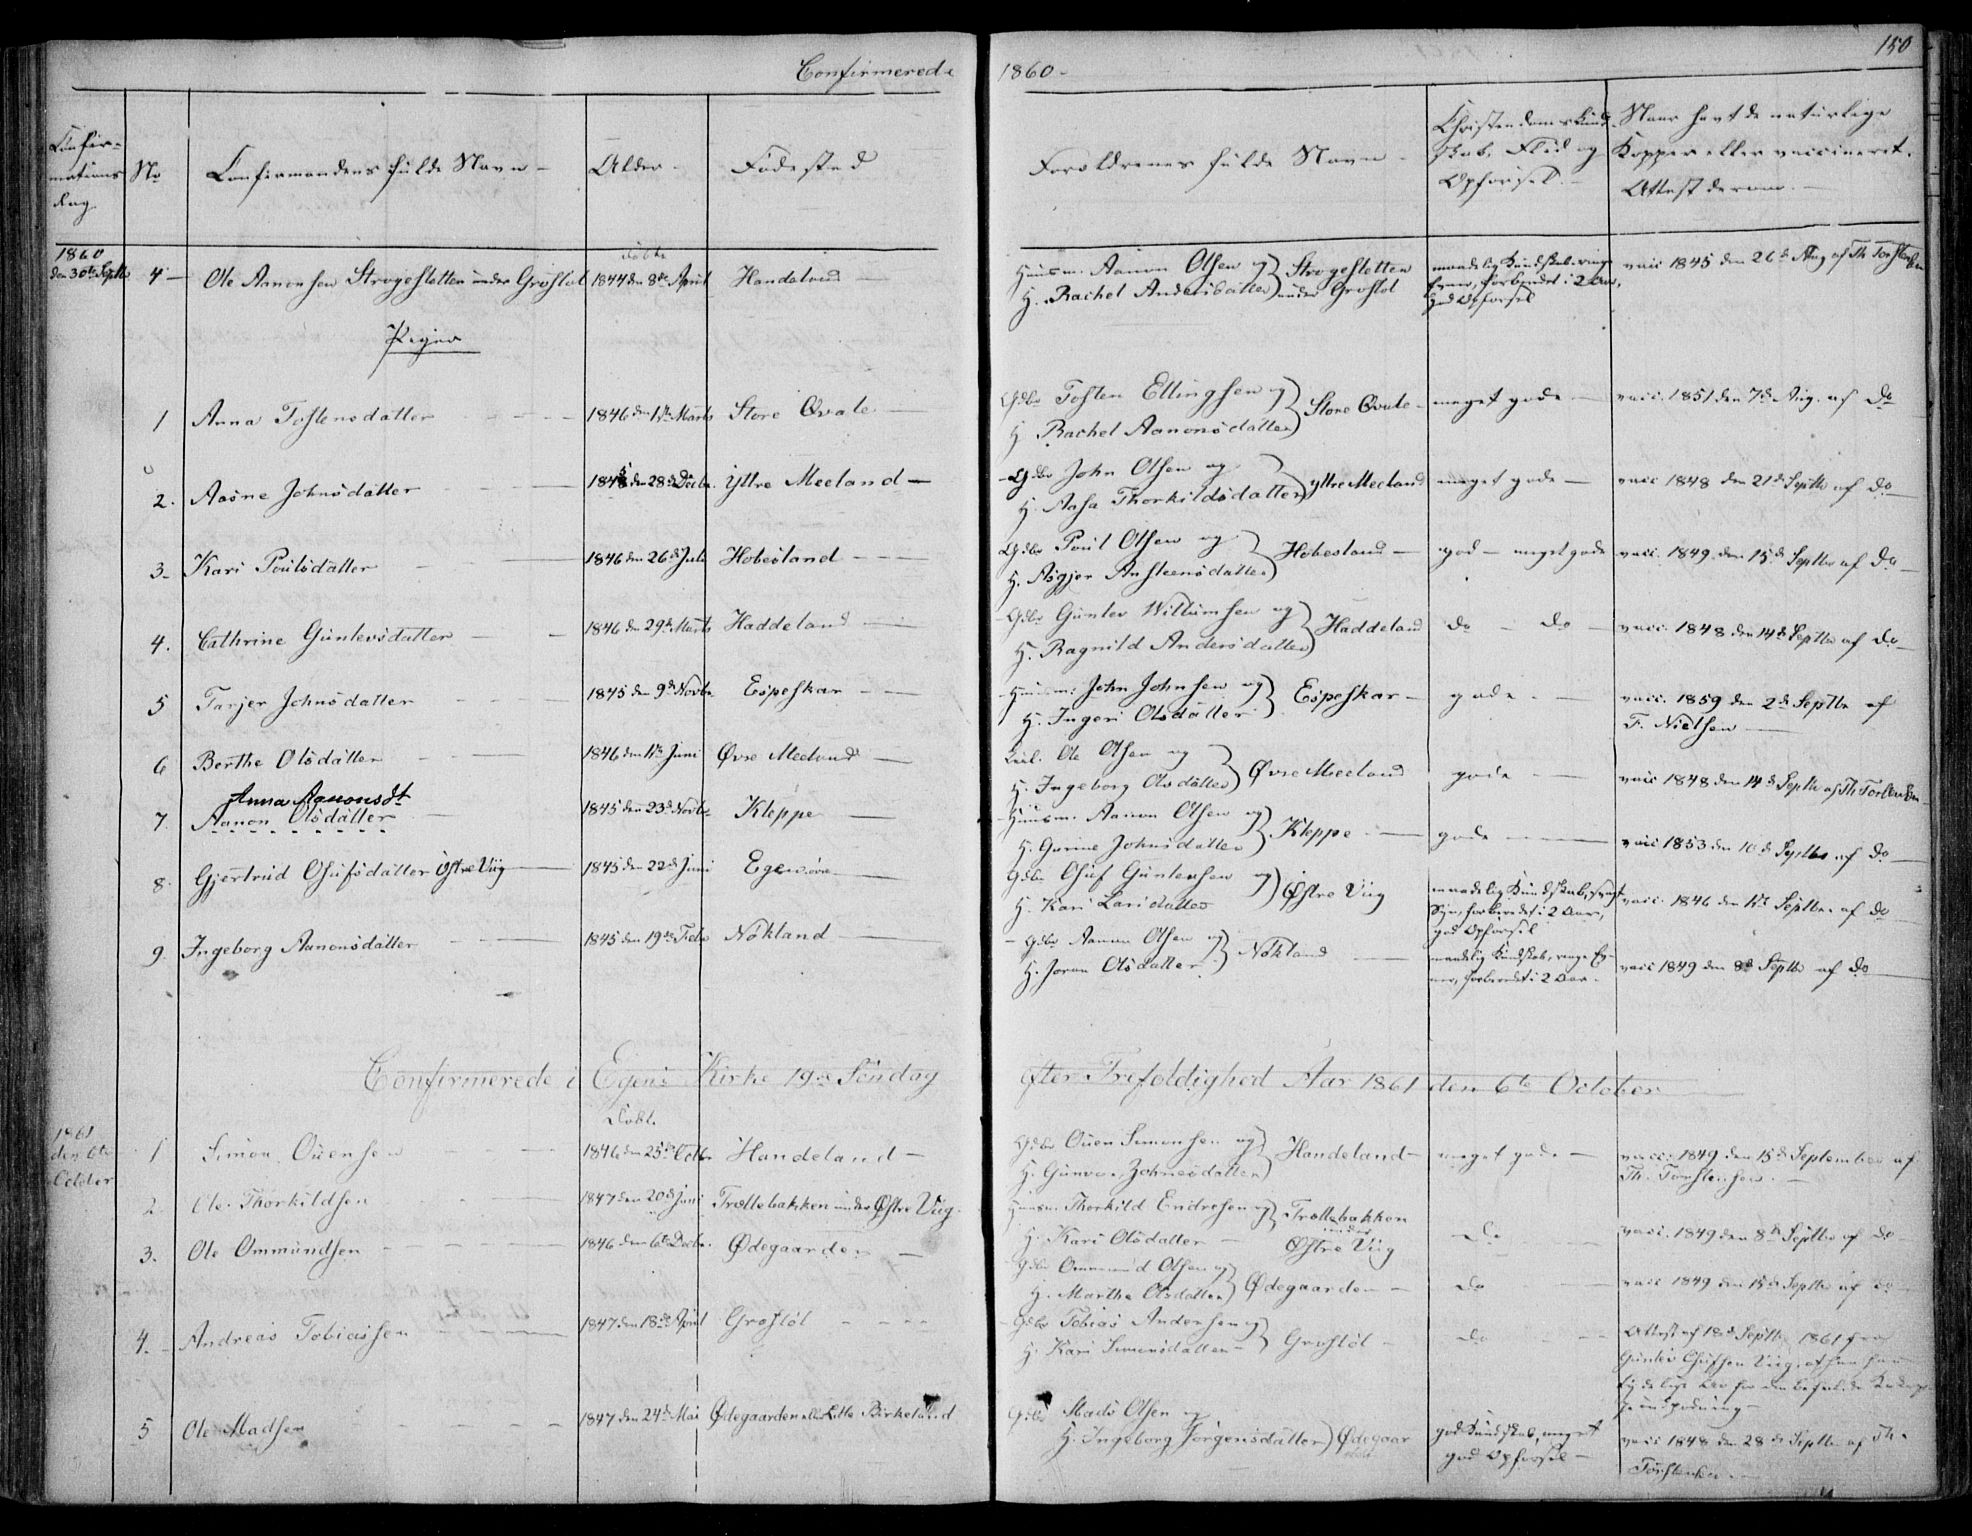 Confirmerede 1860 -
150
Confir-
mations
dag.
No
Confirmandens fulde Navn -
Alder -
Fødested
Forældrenes fulde Navn -
Christendomskund-
skab, Flid og
Opførsel. -
Naar havt de naturlige
Kopper eller vaccineret.
Attest derom. -
1860
den 30te Septbr 4 - Ole Aanonsen Strogesletten under Grøslot
døbt
1844 den 8de April Handeland
Huusm. Aanon Olsen og
H. Rachel Andersdatter
Strogesletten
under Grøslot
maadelig Kundskab, ringe
Evner, forberedet i 2 Aar,
god Opførsel
vacc 1845 den 26de Aug af Th Torstensen
Piger
1 Anna Tostensdatter 1846 den 1ste Marts Store Qvale
Gdbr Tosten Ellingsen og
H. Rachel Aanonsdatter
Store Qvale - meget gode - vacc. 1851 den 7de Aug. af Do
2. Aasne Johnsdatter 1845 den 28de Decbr. Yttre Meeland -
Gdbr John Olsen og
H. Aasa Thorkildsdatter
Yttre Meeland meget gode - vacc 1848 den 21de Septbr af Do
3. Kari Poulsdatter 1846 den 26de Juli Hobesland
Gdbr Poul Olsen og
H. Asgjer Ansteensdatter
Hobesland - god - meget gode vacc. 1849 den 15de Septbr af Do
4. Cathrine Guntevsdatter 1846 den 29de Marts Haddeland
Gdbr Guntev Willumsen og
H. Ragnild Andersdatter
Haddeland Do - Do - vacc. 1848 den 14de Septbr af Do
5 Tarjer Johnsdatter 1845 den 9de Novbr. Espeskar
Huusm. John Johnsen og
H. Ingeri Olsdatter
Espeskar - gode - vacc. 1859 den 2de Septbr af
F. Nielsen
6 Berthe Olsdatter 1846 den 11te Juni Øvre Meeland
Ole Olsen og
H. Ingeborg Olsdatter
Øvre Meeland gode - vacc 1848 den 14de Septbr af Th Torstensen
Anna Aanonsdt
7. Aanon Olsdatter 1845 den 23de Novbr. Kleppe
Huusm. Aanon Olsen og
H. Gurine Johnsdatter
Kleppe - gode vacc 1853 den 10de Septbr af Do
8. Gjertrud Osufsdatter Østre Viig 1845 den 22de Juni Egenøre
Gdbr Osuf Guntevsen og
H. Kari Larsdatter
Østre Viig
maadelig Kundskab, svagt
Syn, forberedet i 2 Aar,
god Opførsel
vacc. 1846 den 11te Septbr. af Do
9. Ingeborg Aanonsdatter 1845 den 19de Febr Nøkland
Gdbr Aanon Olsen og
H. Joran Olsdatter
Nøkland
maadelig Kundskab, ringe Ev-
ner, forberedet i 2 Aar.
vacc 1849 den 8de Septbr af Do
Confirmerede i Egens Kirke 19de Søndag efter Trefoldighed Aar 1861 den 6te October
1861
den 6te
October
Døbt.
1 Simon Ouensen 1846 den 25de Octbr Handeland -
Gdbr Ouen Simonsen og
H. Gunvor Johnsdatter
Handeland - meget gode - vacc. 1849 den 15de September af
Th. Torstensen. -
2. Ole Thorkildsen 1847 den 20de Juni Trollebakken under Østre Viig.
Huusm. Thorkild Endresen og
H. Kari Olsdatter
Trollebakken
under
Østre Viig
Do vacc. 1849 den 8de Septbr af Do
3. Ole Ommundsen 1846 den 6te Decbr. Ødegaarden
Gdbr Ommund Olsen og
H. Marthe Olsdatter
Ødegaarden - Do vacc 1849 den 15de Septbr af Do
4. Andreas Tobiassen 1847 den 18de April Grøslot
Gdbr Tobias Andersen og
H. Kari Simonsdatter -
Grøslot - Do
Attest af 18de Septbr 1861 fra
Guntev Osufsen Viig, at han har
5 Ole Madsen 1847 den 24de Mai Ødegaarden eller Lille Birkeland
Gdbr Mads Olsen og
H. Ingeborg Jørgensdatter
Ødegaar
god Kundskab, meget
god Opførsel -
vacc 1848 den 28de Septbr af Th.
Torstensen. -